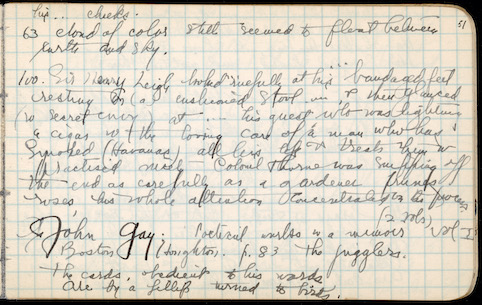 his... cheeks.
51
63 cloud of color still seemed to float between
earth and sky.
100. Sir Henry Leigh looked ruefully at his .... bandaged feet
resting on (a) cushioned stool ... & then glanced
(w secret envy) at ..... his guest who was lighting
a cigar w/ the loving care of a man who has
smoked (Havanas) all his life & treats them w
practised nicety. Colonel Thorne was snipping off
the end as carefully as a gardener prunes
roses, his whole attention concentrated on the process
(2 vols)
John Gay. Poetical works w a memoir vol I
Boston (Houghton). p. 83 The Jugglers.
The cards, obedient to his words
Are by a fillip turned to birds.